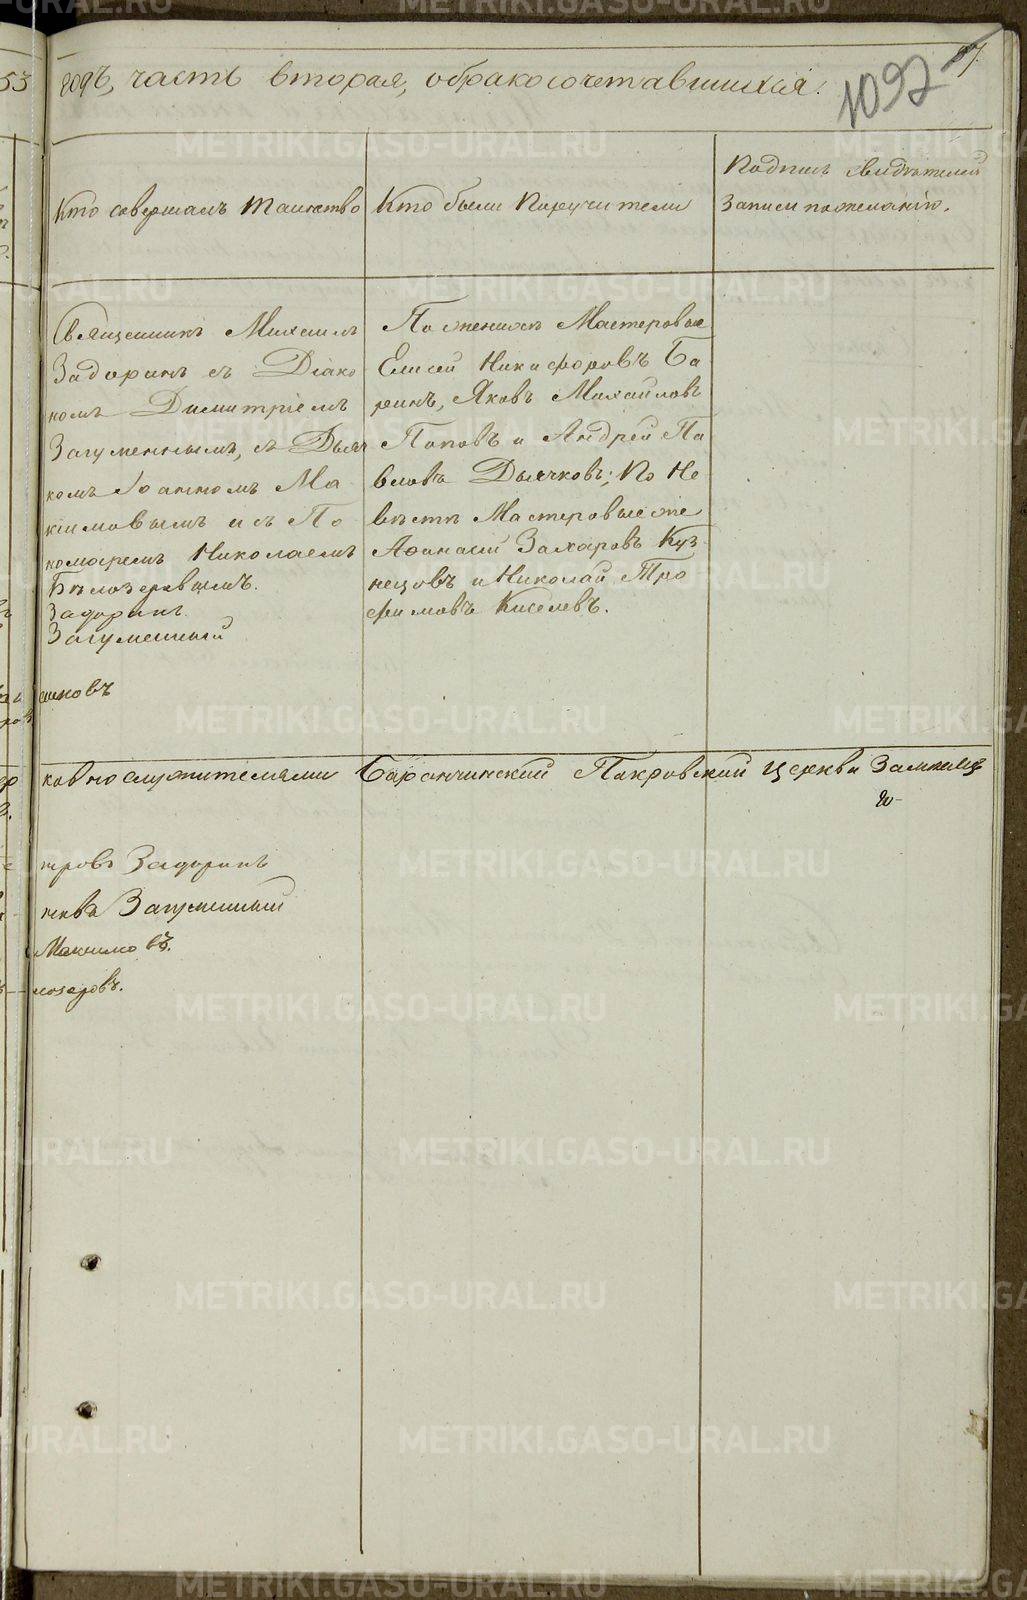 53
годъ, часть вторая, обракосочетавшихся.
1092
97.
Кто совершалъ таинство
Кто были Поручители
Подпись свидѣтелей
Записи пожеланію.
Священникъ Михаилъ
Задоринъ съ Діако
номъ Димитріемъ
Загуменнымъ, съ Дьяч
комъ Іоанномъ Ма
ксимовымъ и съ По
номаремъ Николаемъ
Бѣлозеровымъ.
Задоринъ
Загуменный
По женихѣ Мастеровые
Елисей Никифоровъ Ба
ринъ, Яковъ Михайловъ
Поповъ и Андрей Па
вловъ Дьячковъ; По Не
вѣстѣ Мастеровые же
Афанасій Захаровъ Куз
нецовъ и Николай Тро
фимовъ Киселевъ.
симовъ
ковнослужителями Баранчинский Покровский Церкви
тровъ Задоринъ
Загуменный
Максимовъ.
лозеровъ.
METRIKI.GASO-URAL.RU